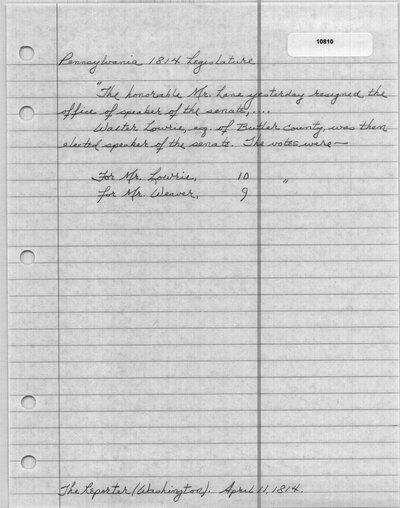 10810
Pennsylvania 1814 Legislature
"The honorable Mr. Lane yesterday resigned the
office of speaker of the senate, ....
Walter Lowrie, esq. of Butler County, was then
elected speaker of the senate. The votes were—
For Mr. Lowrie, 10 "
For Mr. Weaver, 9
The Reporter (Washington). April 11, 1814.